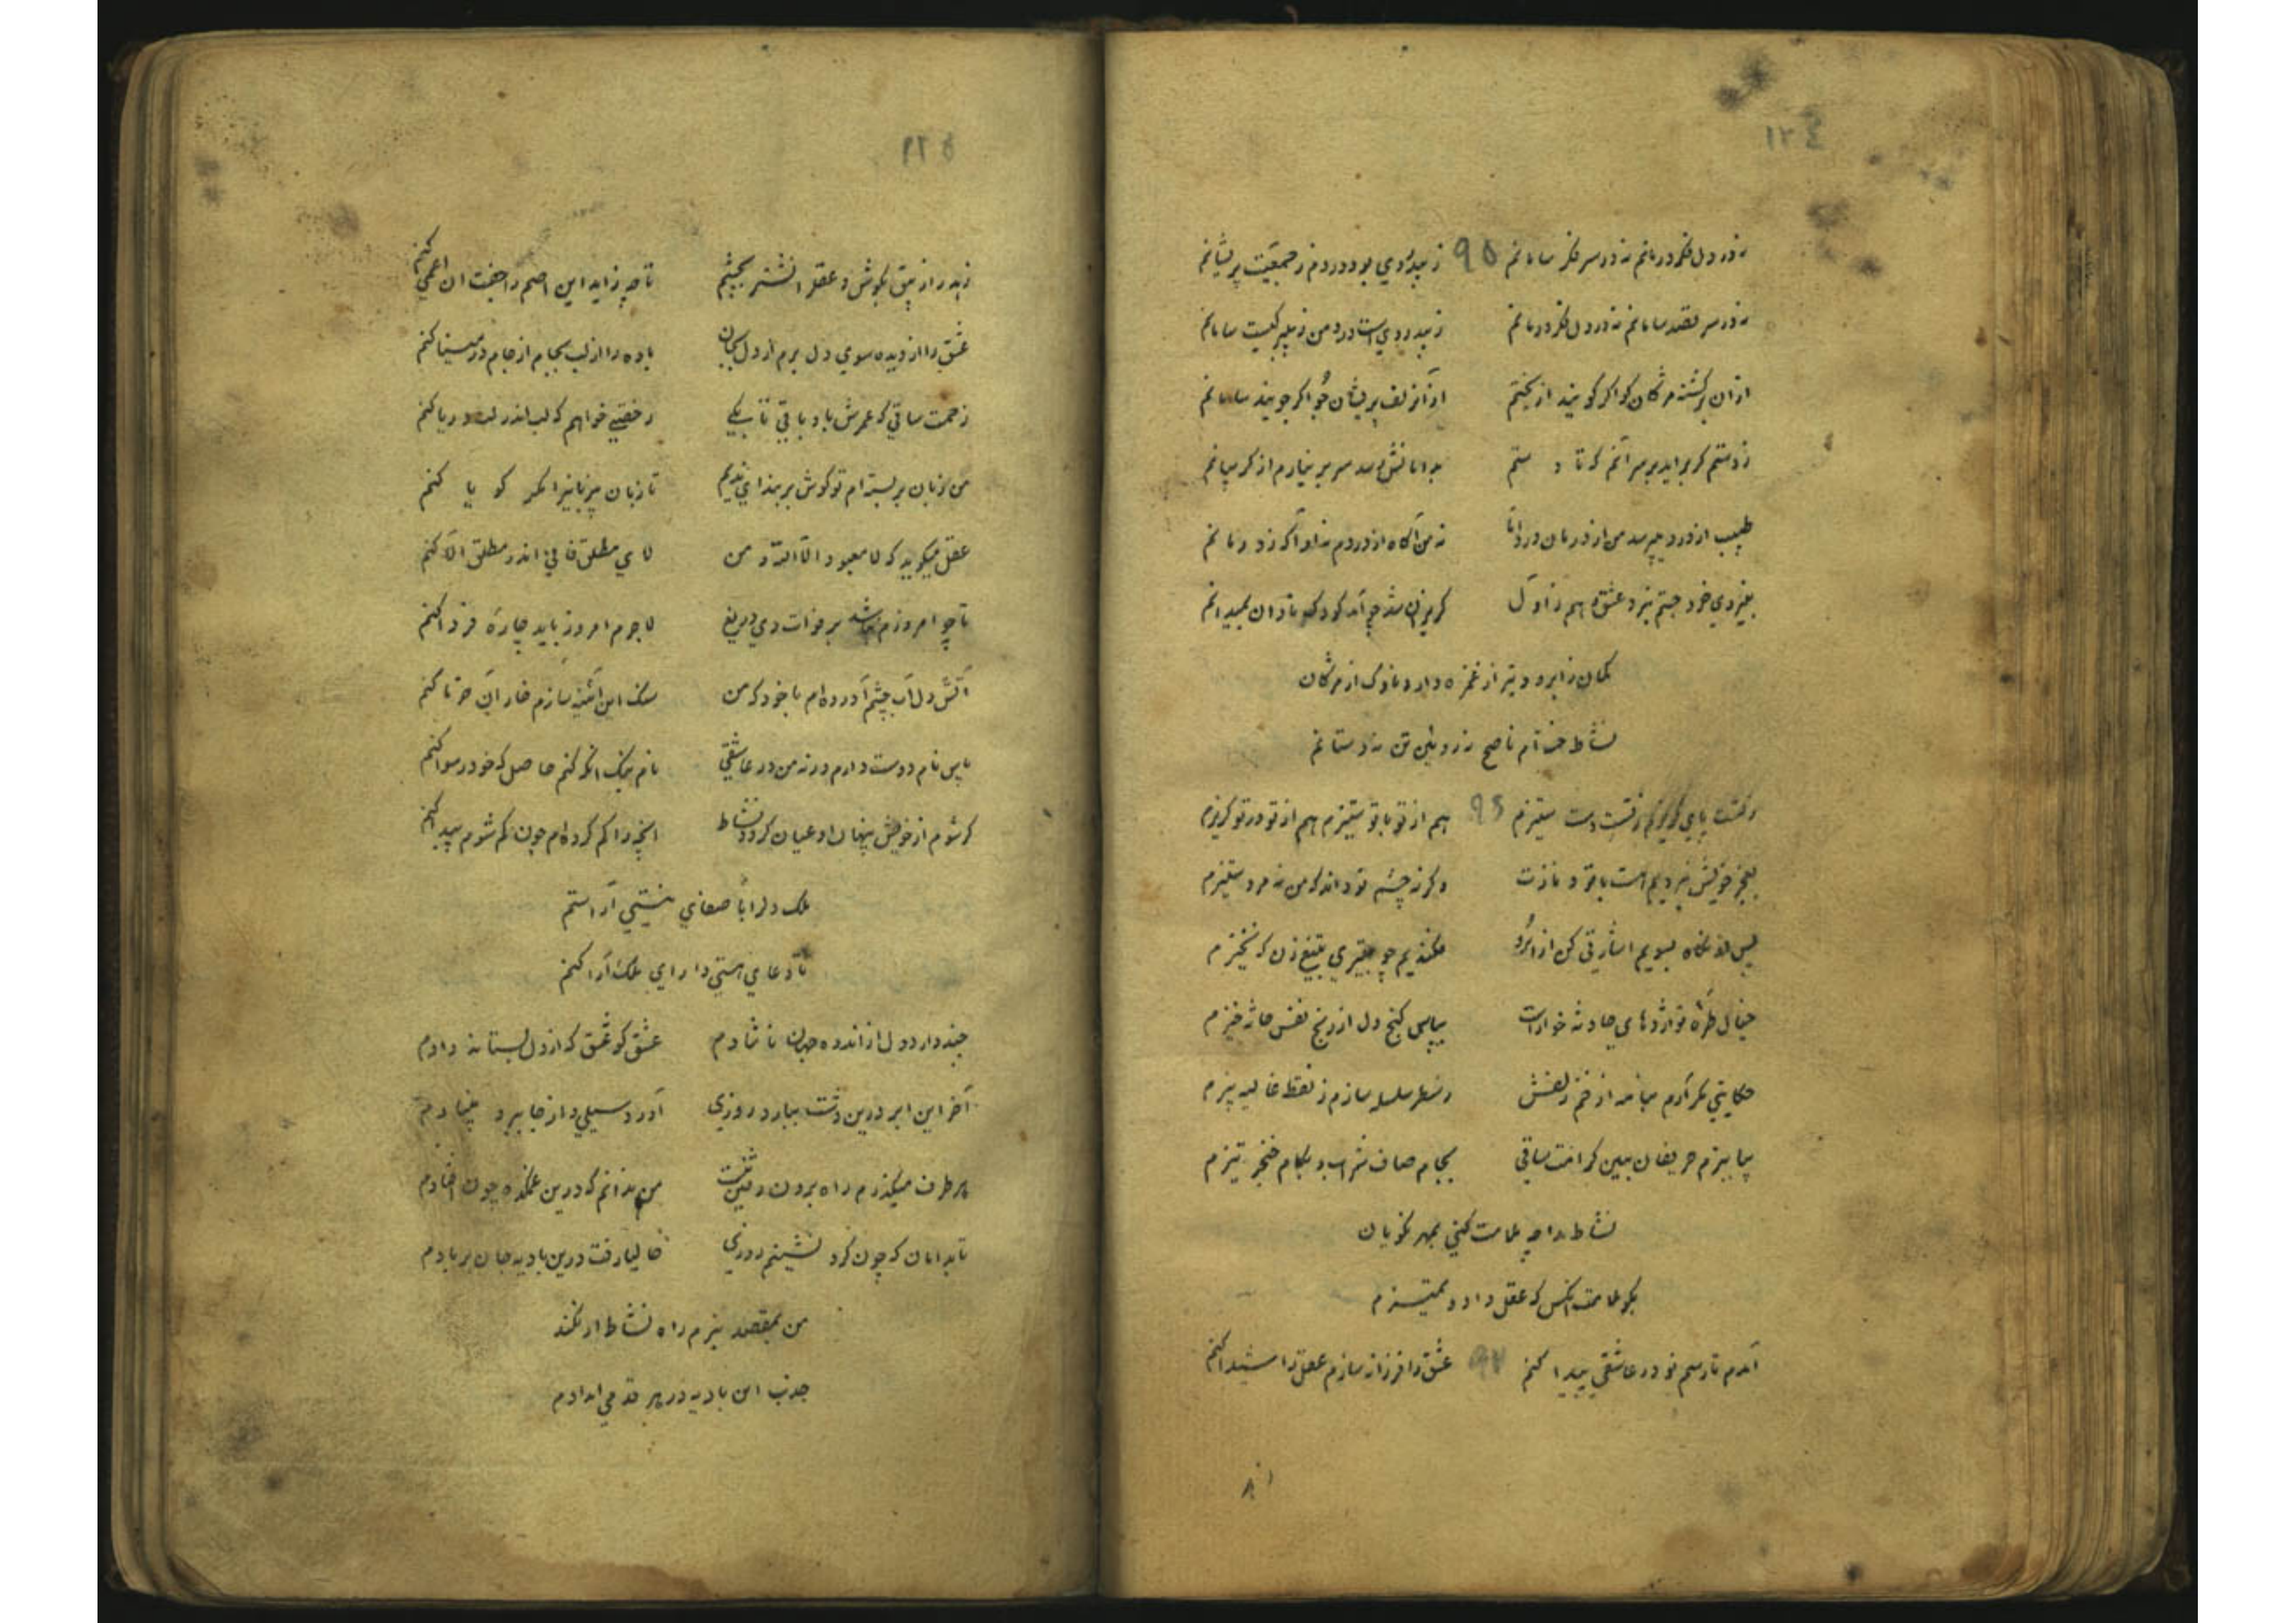 ١٢٤
نه در دل فکر درمانم نه در سر فکر سامانم ٩٥ ز بیدردی بود دردم ز جمعیت پریشانم
نه در سر قصد سامانم نه در دل فکر درمانم ز بیدردی است درد من ز بیبرکیست سامانم
از ان برکشته مژکان کو اکر کویند از بختم از آن زلف پریشان جو اکر جویند سامانم
ز دستم کر براید بر سر آنم که تا دستم بدامانش رسد سر بر نیارم از کریبانم
طبیب از درد میپرسد من از درمان درد اما نه من آکاه از دردم نه او آکه ز درمانم
بنزدی خرد جستم نبرد عشق هم ز اول کریزان شد چو آمد کودک نادان بمیدانم
کمان ز ابرو و تیر از غمزه دارد ناوک از مژکان
نشاط خسته‌ام ناصح نه رویین تن نه دستانم
شکست پای کریزم نشست دست ستیزم ٩٦ هم از تو با تو ستیزم هم از تو در تو کریزم
بعجز خویش نبردیم هست با تو و نازت وکرنه چشم تو داند که من نه مرد ستیزم
پس از نکاه بسویم اشارتی کن از ابرو فکندیم چو بتیری بتیغ زن که نخیزم
خیال طره تو اژدهای حادثه خوار است بپاس کنج دل از رنج نفس حادثه خیزم
حکایتی مکر آرم میانه از خم زلفش ز سطر سلسله سازم ز نقطه غالیه بیزم
بیا ببزم حریفان ببین کرامت ساقی بجام صاف شراب و بکام خنجر تیزم
نشاط را چه ملامت کنی بمهر نکویان
بکو ملامت آنکس که عقل داد و تمیزم
آمدم تا رسم نو در عاشقی پیدا کنم ٩٧ عشق را فرزانه سازم عقل را شیدا کنم
١٢٥
زهد را زیبق بکوش و عقل را نشتر بچشم تا چه زاید این اصم را جفت ان اعمی کنم
عشق را از دیده سوی دل برم از دل بجان باده را از لب بجام از جام در مینا کنم
زحمت ساقی که عمرش باد باقی تا بکی رخصتی خواهم که لب اندر لب دریا کنم
من زبان بر بسته‌ام تو کوش بربند ای ندیم تا زبان بیزبانی را مکر کویا کنم
عقل میکوید که لا معبود الا الله و من لای مطلق فانی اندر مطلق الا کنم
تا چو امروزم نباشد بر فوات دی دریغ لاجرم امروز باید چاره فردا کنم
آتش دل آب چشم آورده‌ام با خود که من سنک این آئینه سازم خار آن خرما کنم
پاس نام دوست دارم ورنه من در عاشقی نام نیک انکه کنم حاصل که خود رسوا کنم
کر شوم از خویش پنهان او عیان کردد نشاط انچه را کم کرده‌ام چون کم شوم پیدا کنم
ملک دل را با صفای نیستی آراستم
تا دعای هستی دارای ملک آرا کنم
چند دارد دل از اندوه جهان ناشادم عشق کو عشق که از دل بستاند دادم
آخر این ابر درین دشت ببارد روزی آورد سیلی و از جا ببرد بنیادم
هر طرف میکذرم راه برون رفتن نیست من ندانم که درین غمکده چون افتادم
تا بدامان که چون کرد نشینم روزی حالیا رفت درین بادیه جان بر بادم
من بمقصد نبرم راه نشاط ار نکند
جذب این بادیه در هر قدمی امدادم